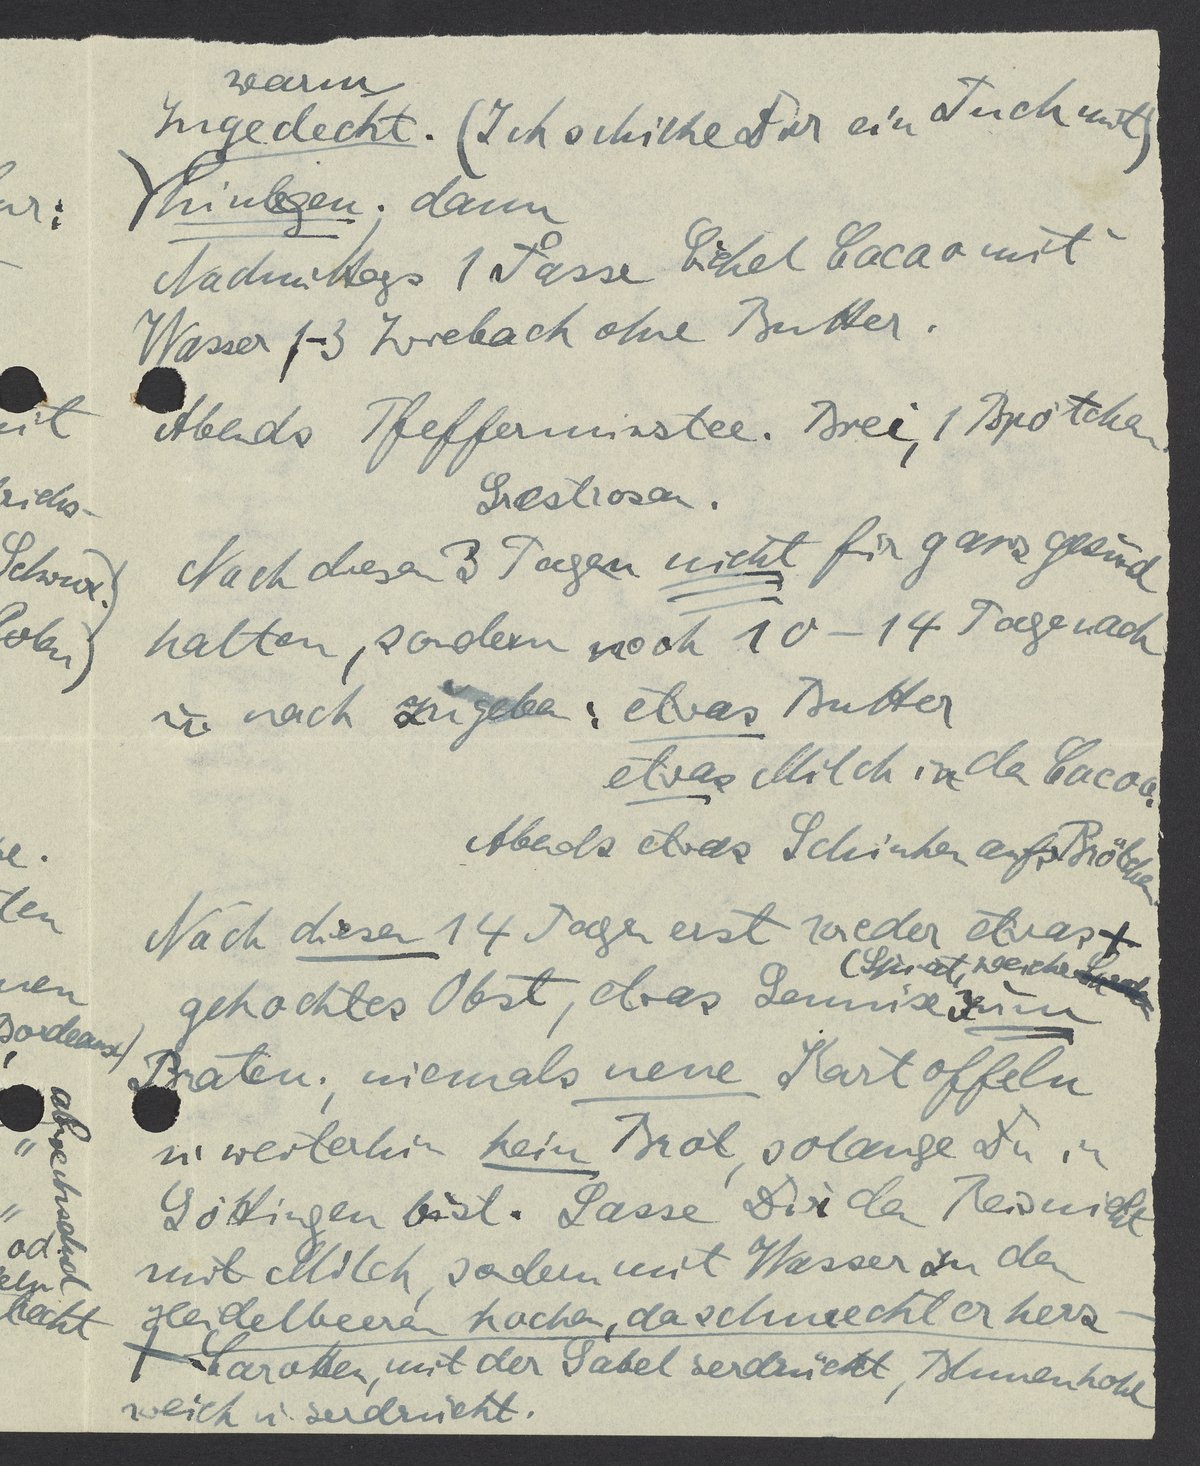 warm
zugedeckt. (Ich schicke Dir ein Tuch mit)
hinlegen; dann
Nachmittags 1 Tasse Eichel Cacao mit
Wasser 1-3 Zwieback ohne Butter.
Abends Pfefferminztee. Brei, 1 Brötchen
Nach diesen 3 Tagen nicht für ganz gesund
halten, sondern noch 10-14 Tage nach
u. nach zugeben: etwas Butter
etwas Milch in den Cacao.
Abends etwas Schinken aufs Brötchen.
Nach diesen 14 Tagen erst wieder etwas +
(Spinat, weiche
gekochtes Obst, etwas Gemüse zum
Braten; niemals neue Kartoffeln
u. weiterhin kein Brot, solange Du in
Göttingen bist. Lasse Dir den Reis nicht
mit Milch, sondern mit Wasser zu den
Heidelbeeren kochen, da schmeckt er herz-
+ Carotten, mit der Gabel zerdrückt, Blumenkohl
weich u. zerdrückt.
ar:
mit
richs-
Schwarz.)
ten
nen
Bordeaux)
"
"
od.
abwechselnd